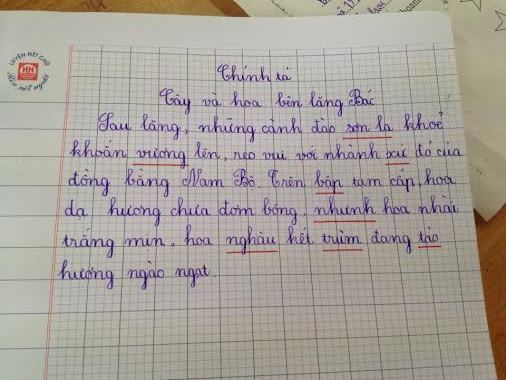 LUYỆN NÉT CHỮ
Chính tả
Cây và hoa bên lăng Bác
Sau lăng, những cành đào sơn la khoẻ
khoắn vương lên, reo vui với nhành xứ đỏ của
đồng bằng Nam Bộ. Trên bập tam cấp, hoa
dạ hương chưa đơm bông, nhưnh hoa nhài
trắng mịn, hoa nghàu kết trùm đang tảo
hương ngào ngạt.